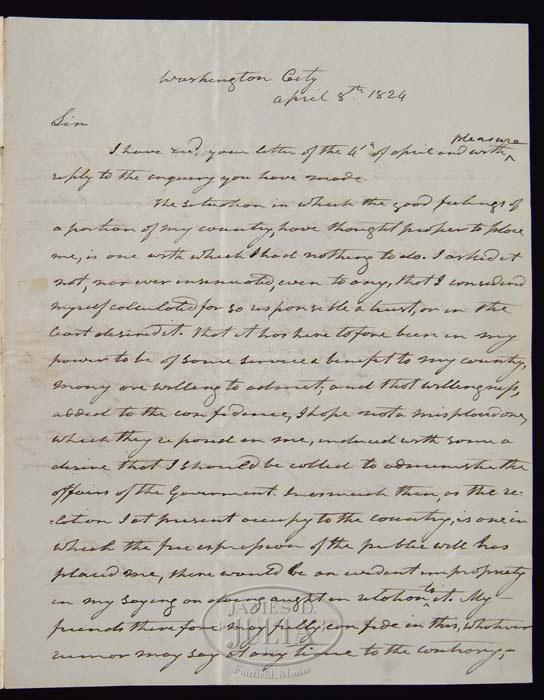 Washington City
April 8th. 1824
Sir
pleasure
I have recd. your letter of the 4th of april and with ^
reply to the enquiry you have made
The situation in which the good feelings of
a portion of my country, have thought proper to place
me, is one with which I had nothing to do. I asked it
not, nor ever insinuated, even to any, that I considered
myself calculated for so responsible a trust, or in the
least desired it. That it has heretofore been in my
power to be of some service & benefit to my country,
many are willing to admit; and that willingness,
added to the confidence, I hope not a misplaced one,
which they reposed in me, induced with some a
desire that I should be called to administer the
affairs of the Goverment. Inasmuch then, as the re-
-lation I at present occupy to the country, is one in
which the free expression of the public will has
placed me, there would be an evident impropriety
in my saying or doing aught in relation to it. My
friends therefore may fully confide in this, whatever
rumor may say at any time to the contrary,-
JAMES D.
JULIA
Fairfield, Maine